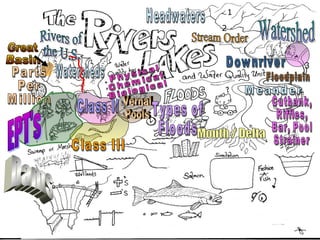 The
Rivers
Lakes
and Water Quality Unit
Headwaters
Stream Order
1
2
Watershed
Rivers of
the U.S.
Great
Basin
Parts
Per
Million
Watersheds
Water
Quality
Physical
Chemical
Biological
Downriver
Floodplain
Meander
Cutbank,
Riffles,
Bar, Pool
Strainer
Class I
Vernal
Pools
FLOODS
Types of
Floods
Mouth / Delta
EPT's
Class III
Dams
Swamp or Marsh
Wetlands
+'s
-'s
Salmon
Fish